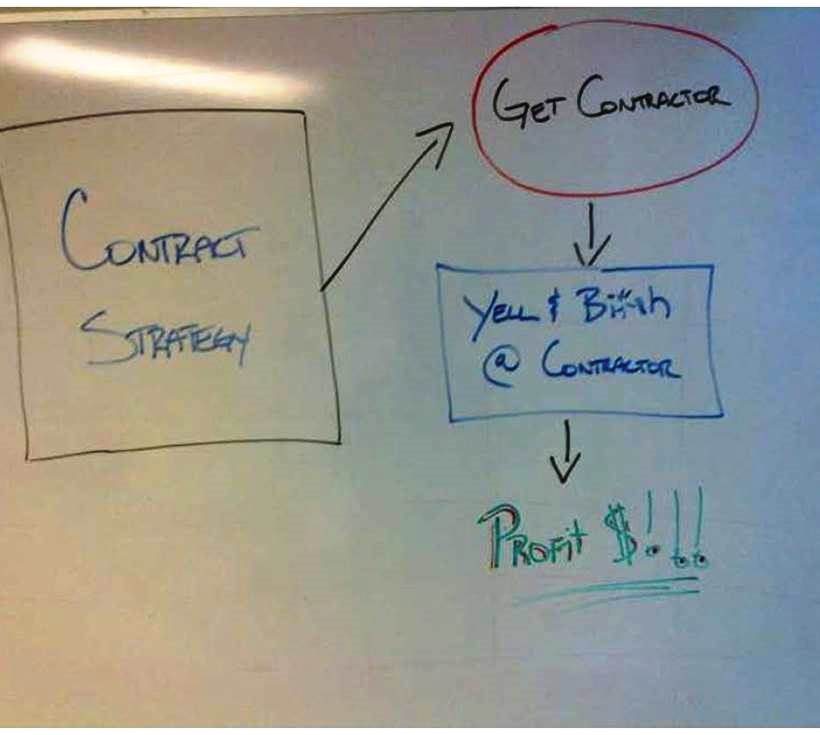 CONTRACT
STRATEGY
GET CONTRACTOR
YELL & B**h
@ CONTRACTOR
PROFIT $!!!